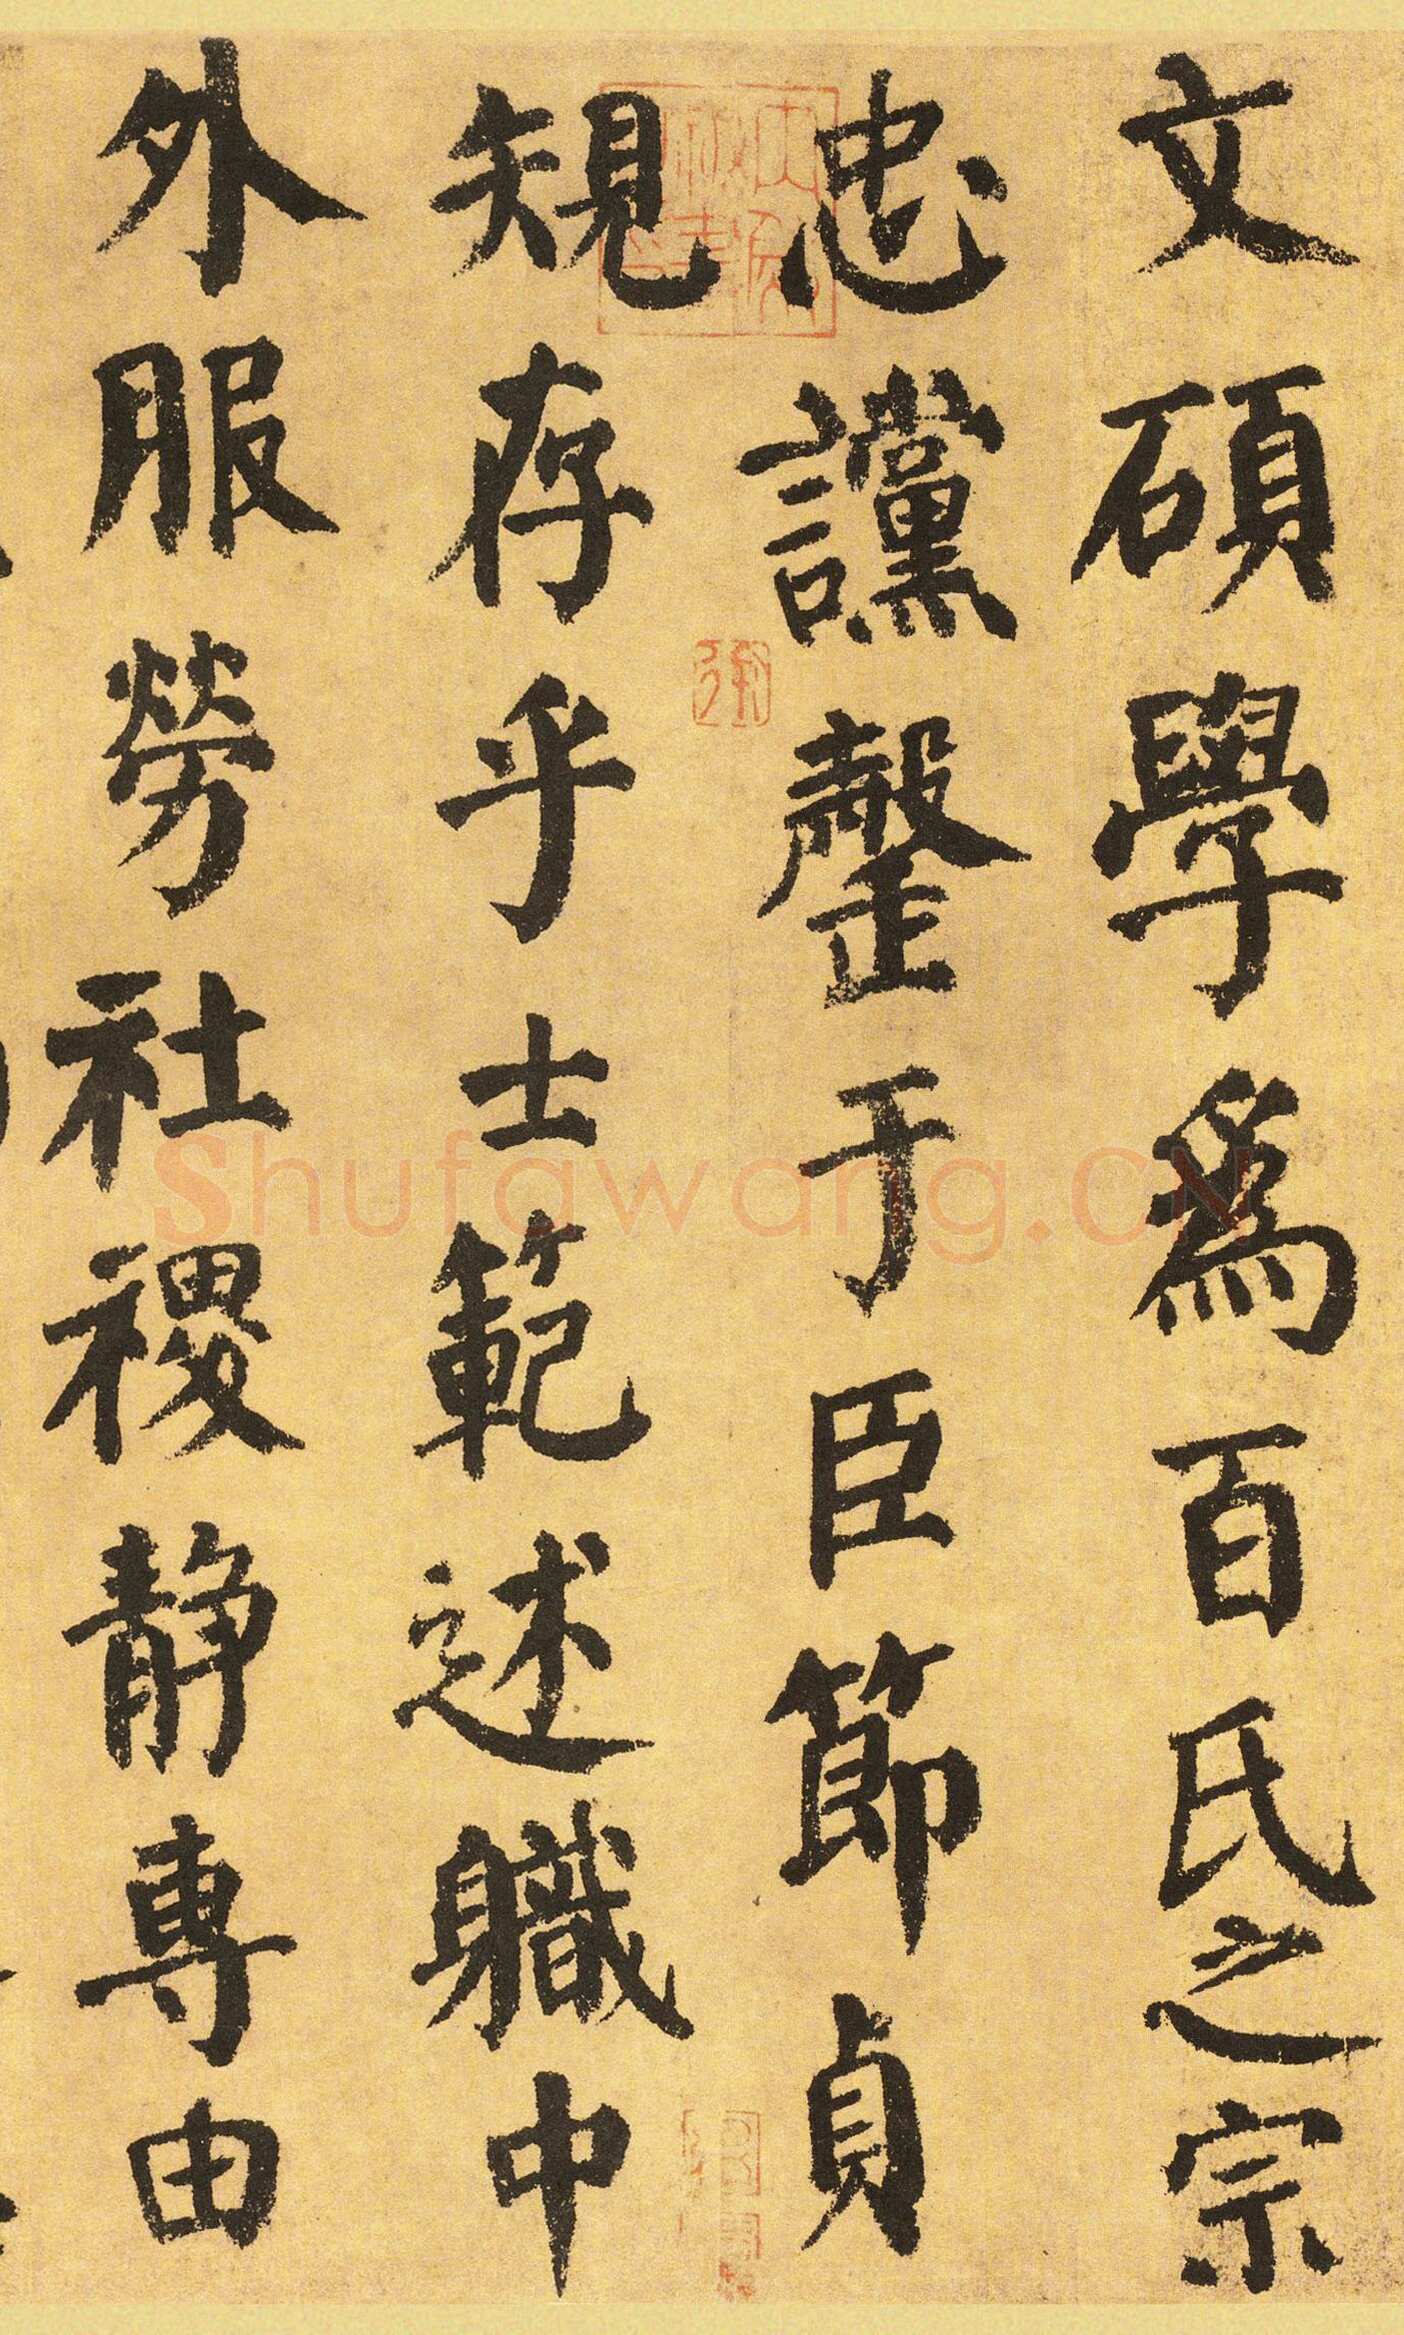 文碩學為百氏之宗
忠讜罄于臣節貞
規存乎士範述職中
外服勞社稷靜專由
Shufawang.CN